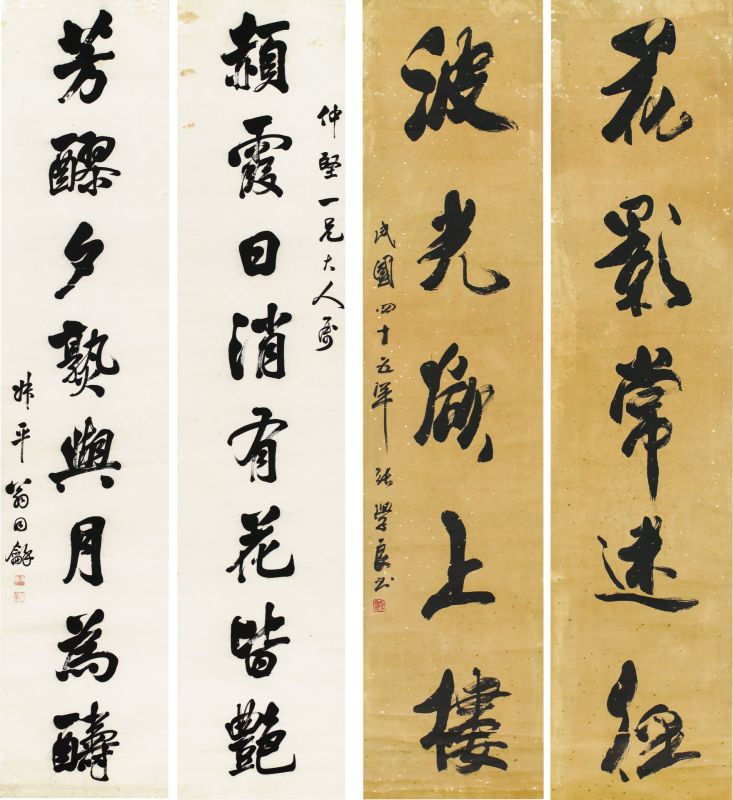 花影常迷徑
波光欲上樓
民國四十五年 張學良書
仲堅一兄大人屬
頳霞日消有花皆艷
芳醪夕熟與月為醻
叔平翁同龢